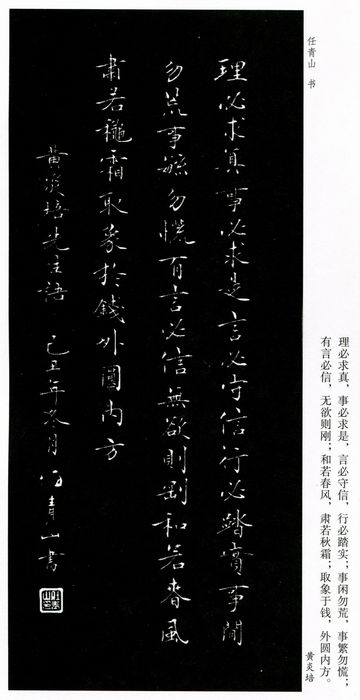 理必求真,事必求是,言必守信,行必踏实;事闲勿荒,事繁勿慌;
有言必信,无欲则刚;和若春风,肃若秋霜;取象于钱,外圆内方。
黄炎培
任青山 书
理必求真事必求是言必守信行必踏實事閒
勿荒事繁勿慌有言必信無欲則剛和若春風
肅若穐霜取象於錢外圓内方
黄炎培先生語 己丑年冬月 任青山書